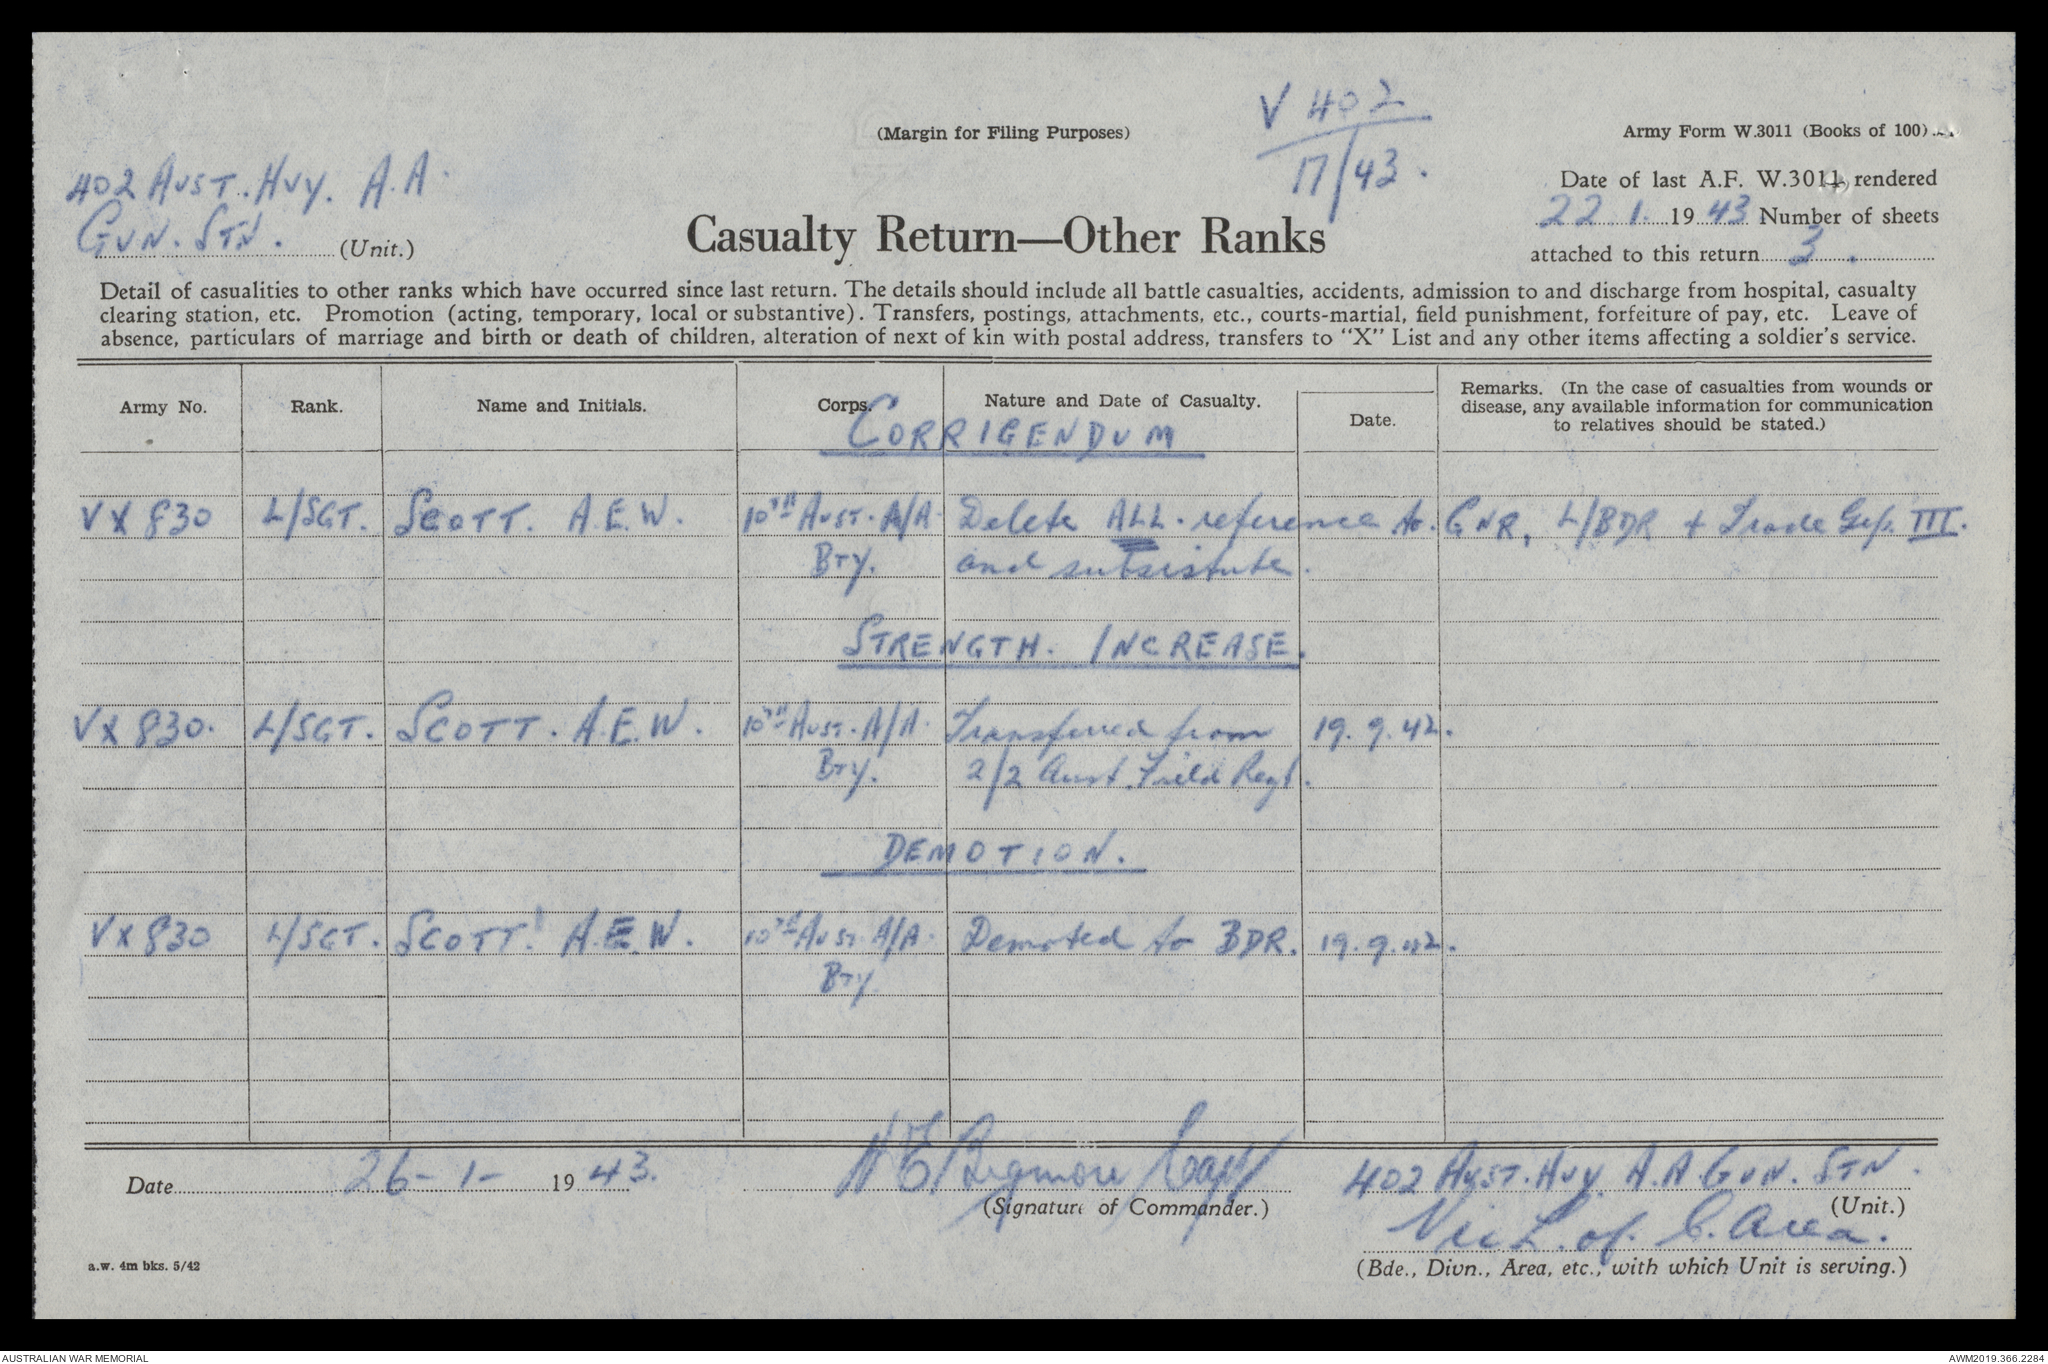 V 402
17/43.
(Margin for Filing Purposes)
Army Form W.3011 (Books of 100)
402 AUST. HVY. A.A.
GUN. STN. (Unit.)
Date of last A.F. W.3011 rendered
22 1. 1943 Number of sheets
attached to this return 3.
Casualty Return—Other Ranks
Detail of casualities to other ranks which have occurred since last return. The details should include all battle casualties, accidents, admission to and discharge from hospital, casualty
clearing station, etc. Promotion (acting, temporary, local or substantive). Transfers, postings, attachments, etc., courts-martial, field punishment, forfeiture of pay, etc. Leave of
absence, particulars of marriage and birth or death of children, alteration of next of kin with postal address, transfers to "X" List and any other items affecting a soldier's service.
Army No. Rank. Name and Initials. Corps. Nature and Date of Casualty. Date. Remarks. (In the case of casualties from wounds or
disease, any available information for communication
to relatives should be stated.)
CORRIGENDUM
VX830 L/SGT. SCOTT. A.E.W. 10TH AUST. A/A. Delete ALL. reference to. GNR, L/BDR + Trade Gp. III.
BTY. and subsistute.
STRENGTH. INCREASE.
VX830. L/SGT. SCOTT. A.E.W. 10TH AUST. A/A. Transferred from 19.9.42.
BTY. 2/2 Aust. Field Regt.
DEMOTION.
VX830 L/SGT. SCOTT. A.E.W. 10TH AUST. A/A. Demoted to BDR. 19.9.42.
BTY
Date 26-1-1943.
H E Bigmore Capt
(Signature of Commander.)
402 AUST. HVY. A.A GUN. STN.
(Unit.)
Vic L. of. C. Area.
(Bde., Divn., Area, etc., with which Unit is serving.)
a.w. 4m bks. 5/42
AUSTRALIAN WAR MEMORIAL
AWM2019.366.2284